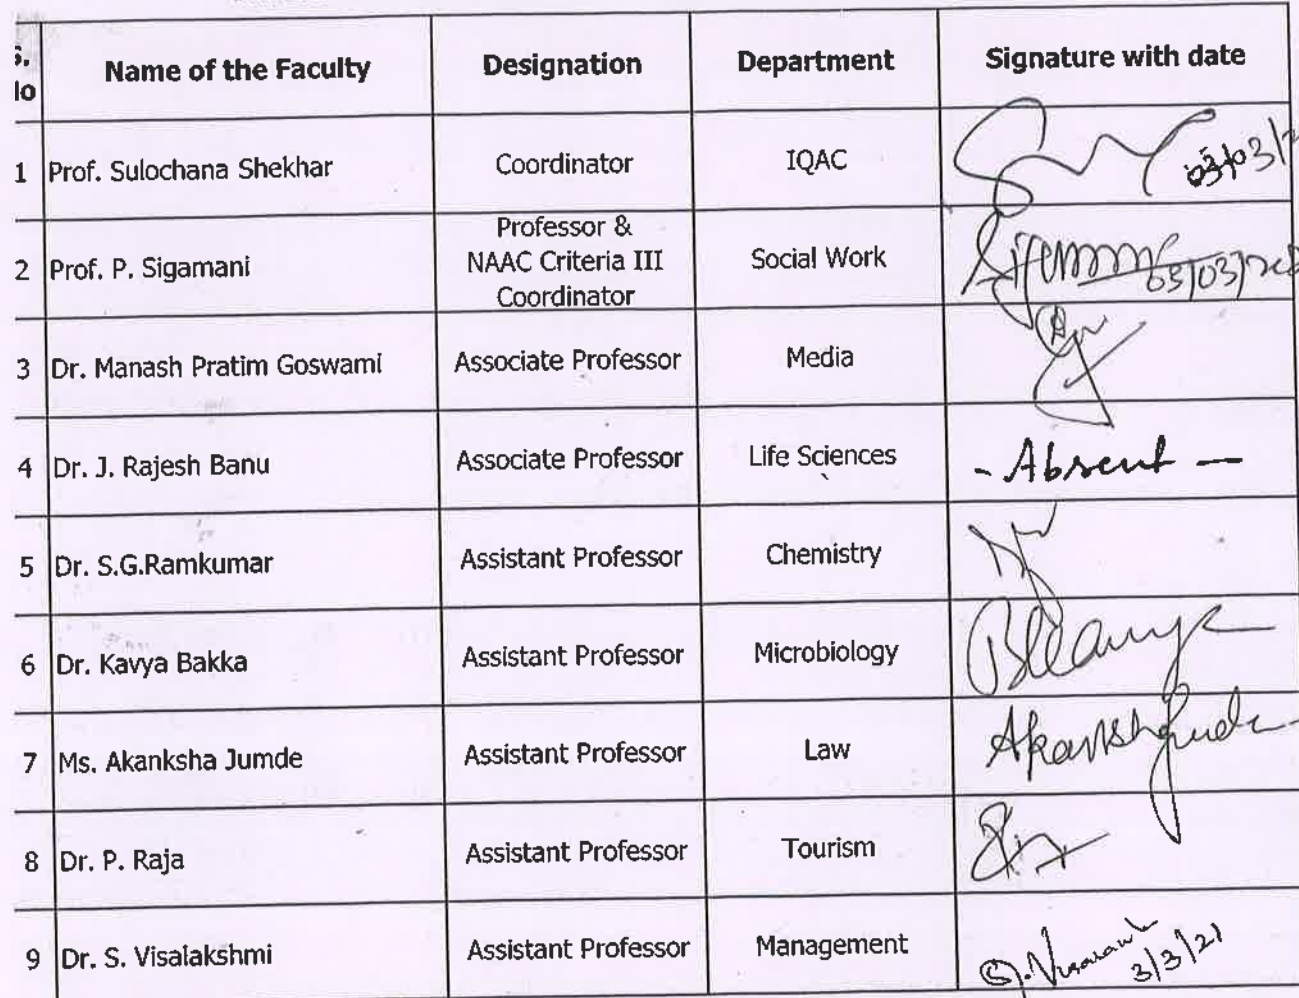 S. Name of the Faculty Designation Department Signature with date
No
1 Prof. Sulochana Shekhar Coordinator IQAC 03/03/2
Professor &
2 Prof. P. Sigamani NAAC Criteria III Social Work 03/03/202
Coordinator
3 Dr. Manash Pratim Goswami Associate Professor Media
4 Dr. J. Rajesh Banu Associate Professor Life Sciences - Absent -
5 Dr. S.G.Ramkumar Assistant Professor Chemistry
6 Dr. Kavya Bakka Assistant Professor Microbiology
7 Ms. Akanksha Jumde Assistant Professor Law
8 Dr. P. Raja Assistant Professor Tourism
9 Dr. S. Visalakshmi Assistant Professor Management 3/3/21